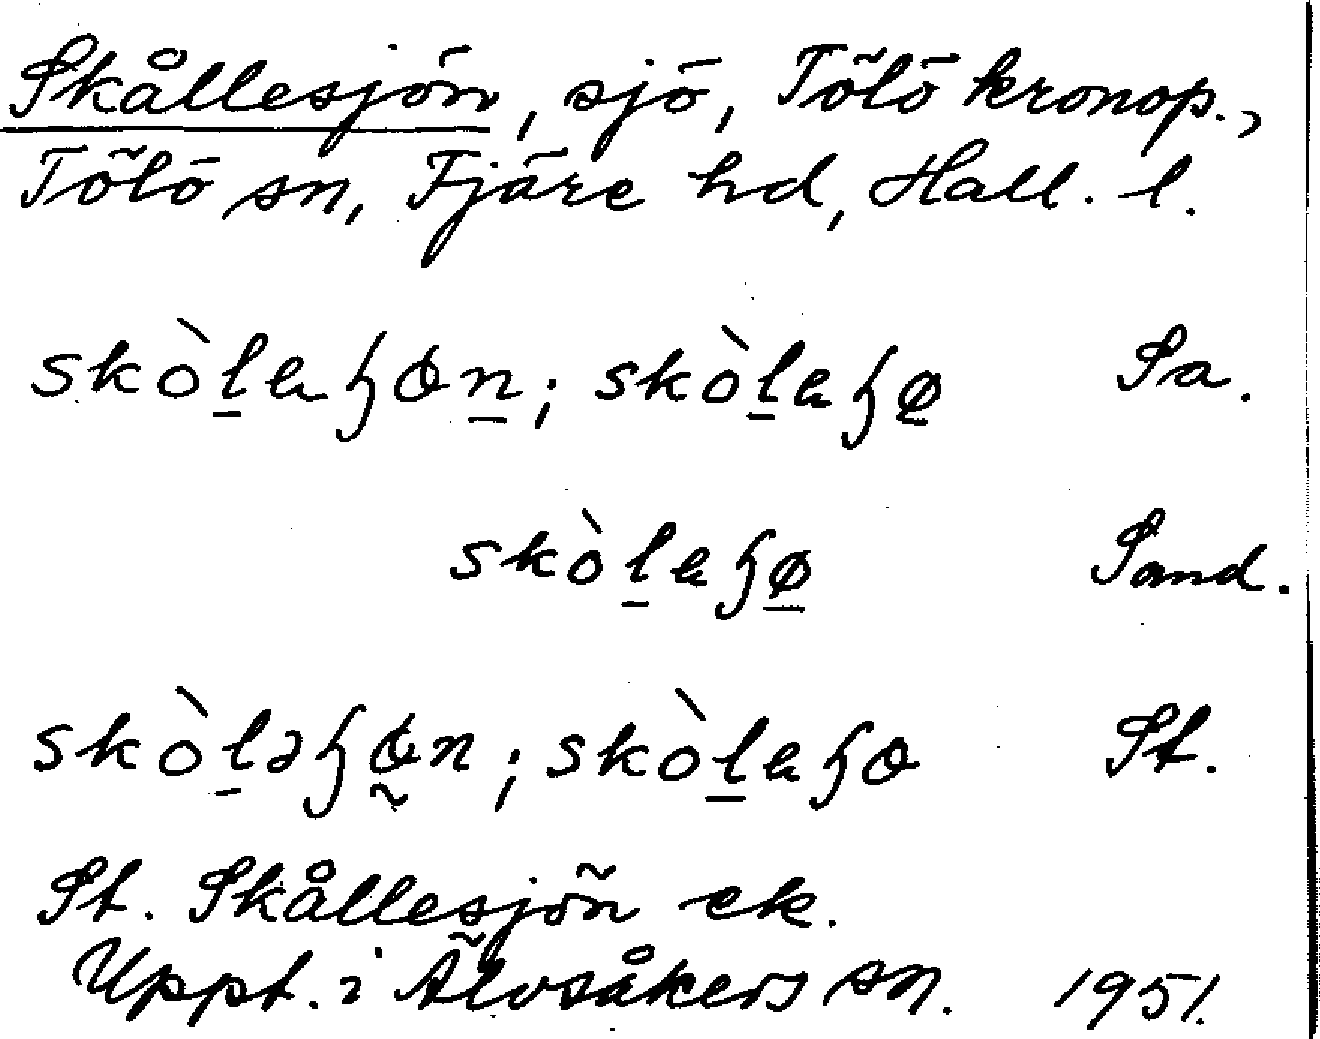 Skållesjön, sjö, Tölö kronop.,
Tölö sn, Fjäre hd, Hall. l.
skòḻaɧɵṉ; skòḻaɧø̱ Sa.
skòḻaɧø̱ Sand.
skòḻəɧɵ̰n; skòḻaɧɵ St.
St. Skållesjön ek.
Uppt. i Älvsåkers sn. 1951.